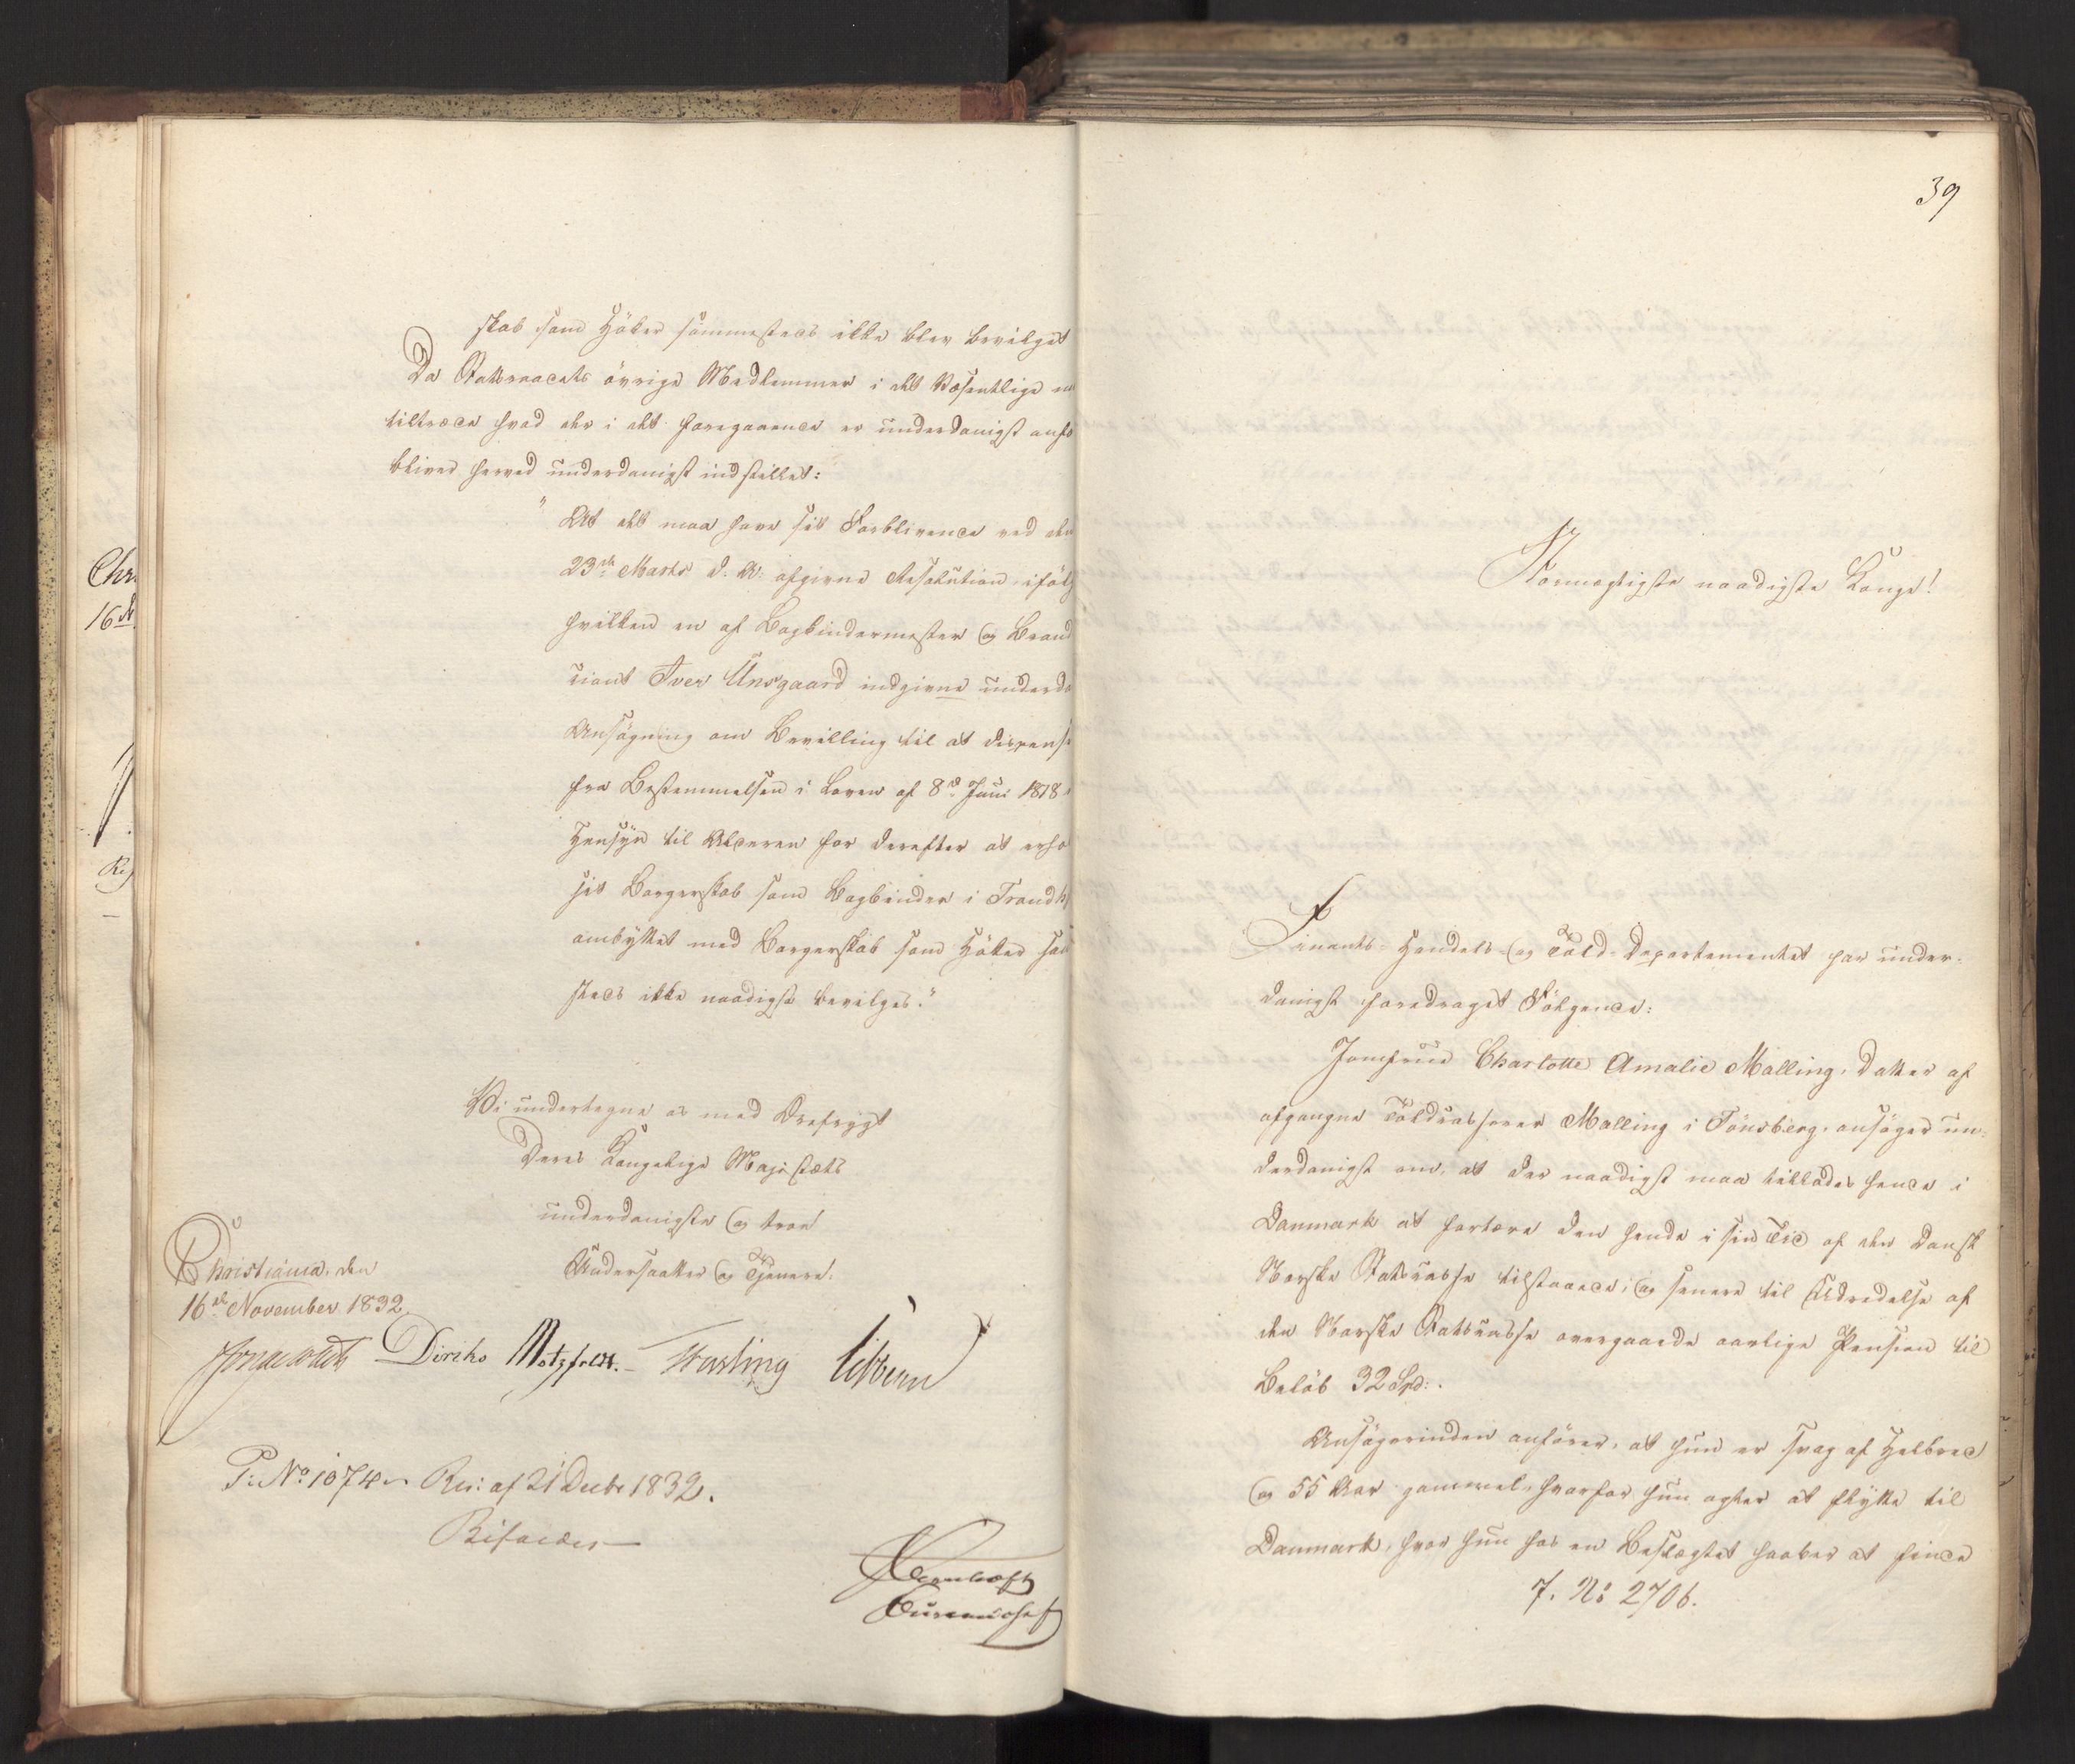 skab som Höker sammesteds ikke blev bevilget
Da Statsraadets övrige Medlemmer i det Væsentlige
tiltræde hvad der i det foregaaende er underdanigst anfö
bliver herved underdanigst indstillet:
"At det maa have sit Forblivende ved den
23de Marts d. A. afgivne Resolution, ifölg
hvilken en af Bogbindermester og Brand
Iver Unsgaard indgivne underda
Ansögning om Bevilling til at dispense
fra Bestemmelsen i Loven af 8de Juni 1818
Hensyn til Alderen for derefter at erho
sit Borgerskab som Bogbinder i Trondhj
ombyttet med Borgerskab som Höker sam
steds ikke naadigst bevilges."
Vi undertegne os med Ærefrygt
Deres Kongelige Majestæts
underdanigste og troe
Undersaatter og Tjenere.
Christiania, den
16de November 1832.
Diriks Motzfeldt.
P: No 1074 Res: af 21 Decbr 1832.
Bifaldes
Chr
16d
39
Stormægtigste naadigste Konge!
Finants- Handels- og Told-Departementet har under-
danigst foredraget Fölgende:
Jomfrue Charlotte Amalie Malling, Datter af
afgangne Toldkasserer Malling i Tönsberg, ansöger un-
derdanigst om, at der naadigst maa tillades hende i
Danmark at fortære den hende i sin Tid af den Dansk
Norske Statskasse tilstaaede, og senere til Udredelse af
den Norske Statskasse overgaaede aarlige Pension til
Belöb 32 Spd:.
Ansögerinden anförer, at hun er svag af Helbred
og 55 Aar gammel, hvorfor hun agter at flytte til
Danmark, hvor hun hos en Beslægtet haaber at finde
7. No 2706.